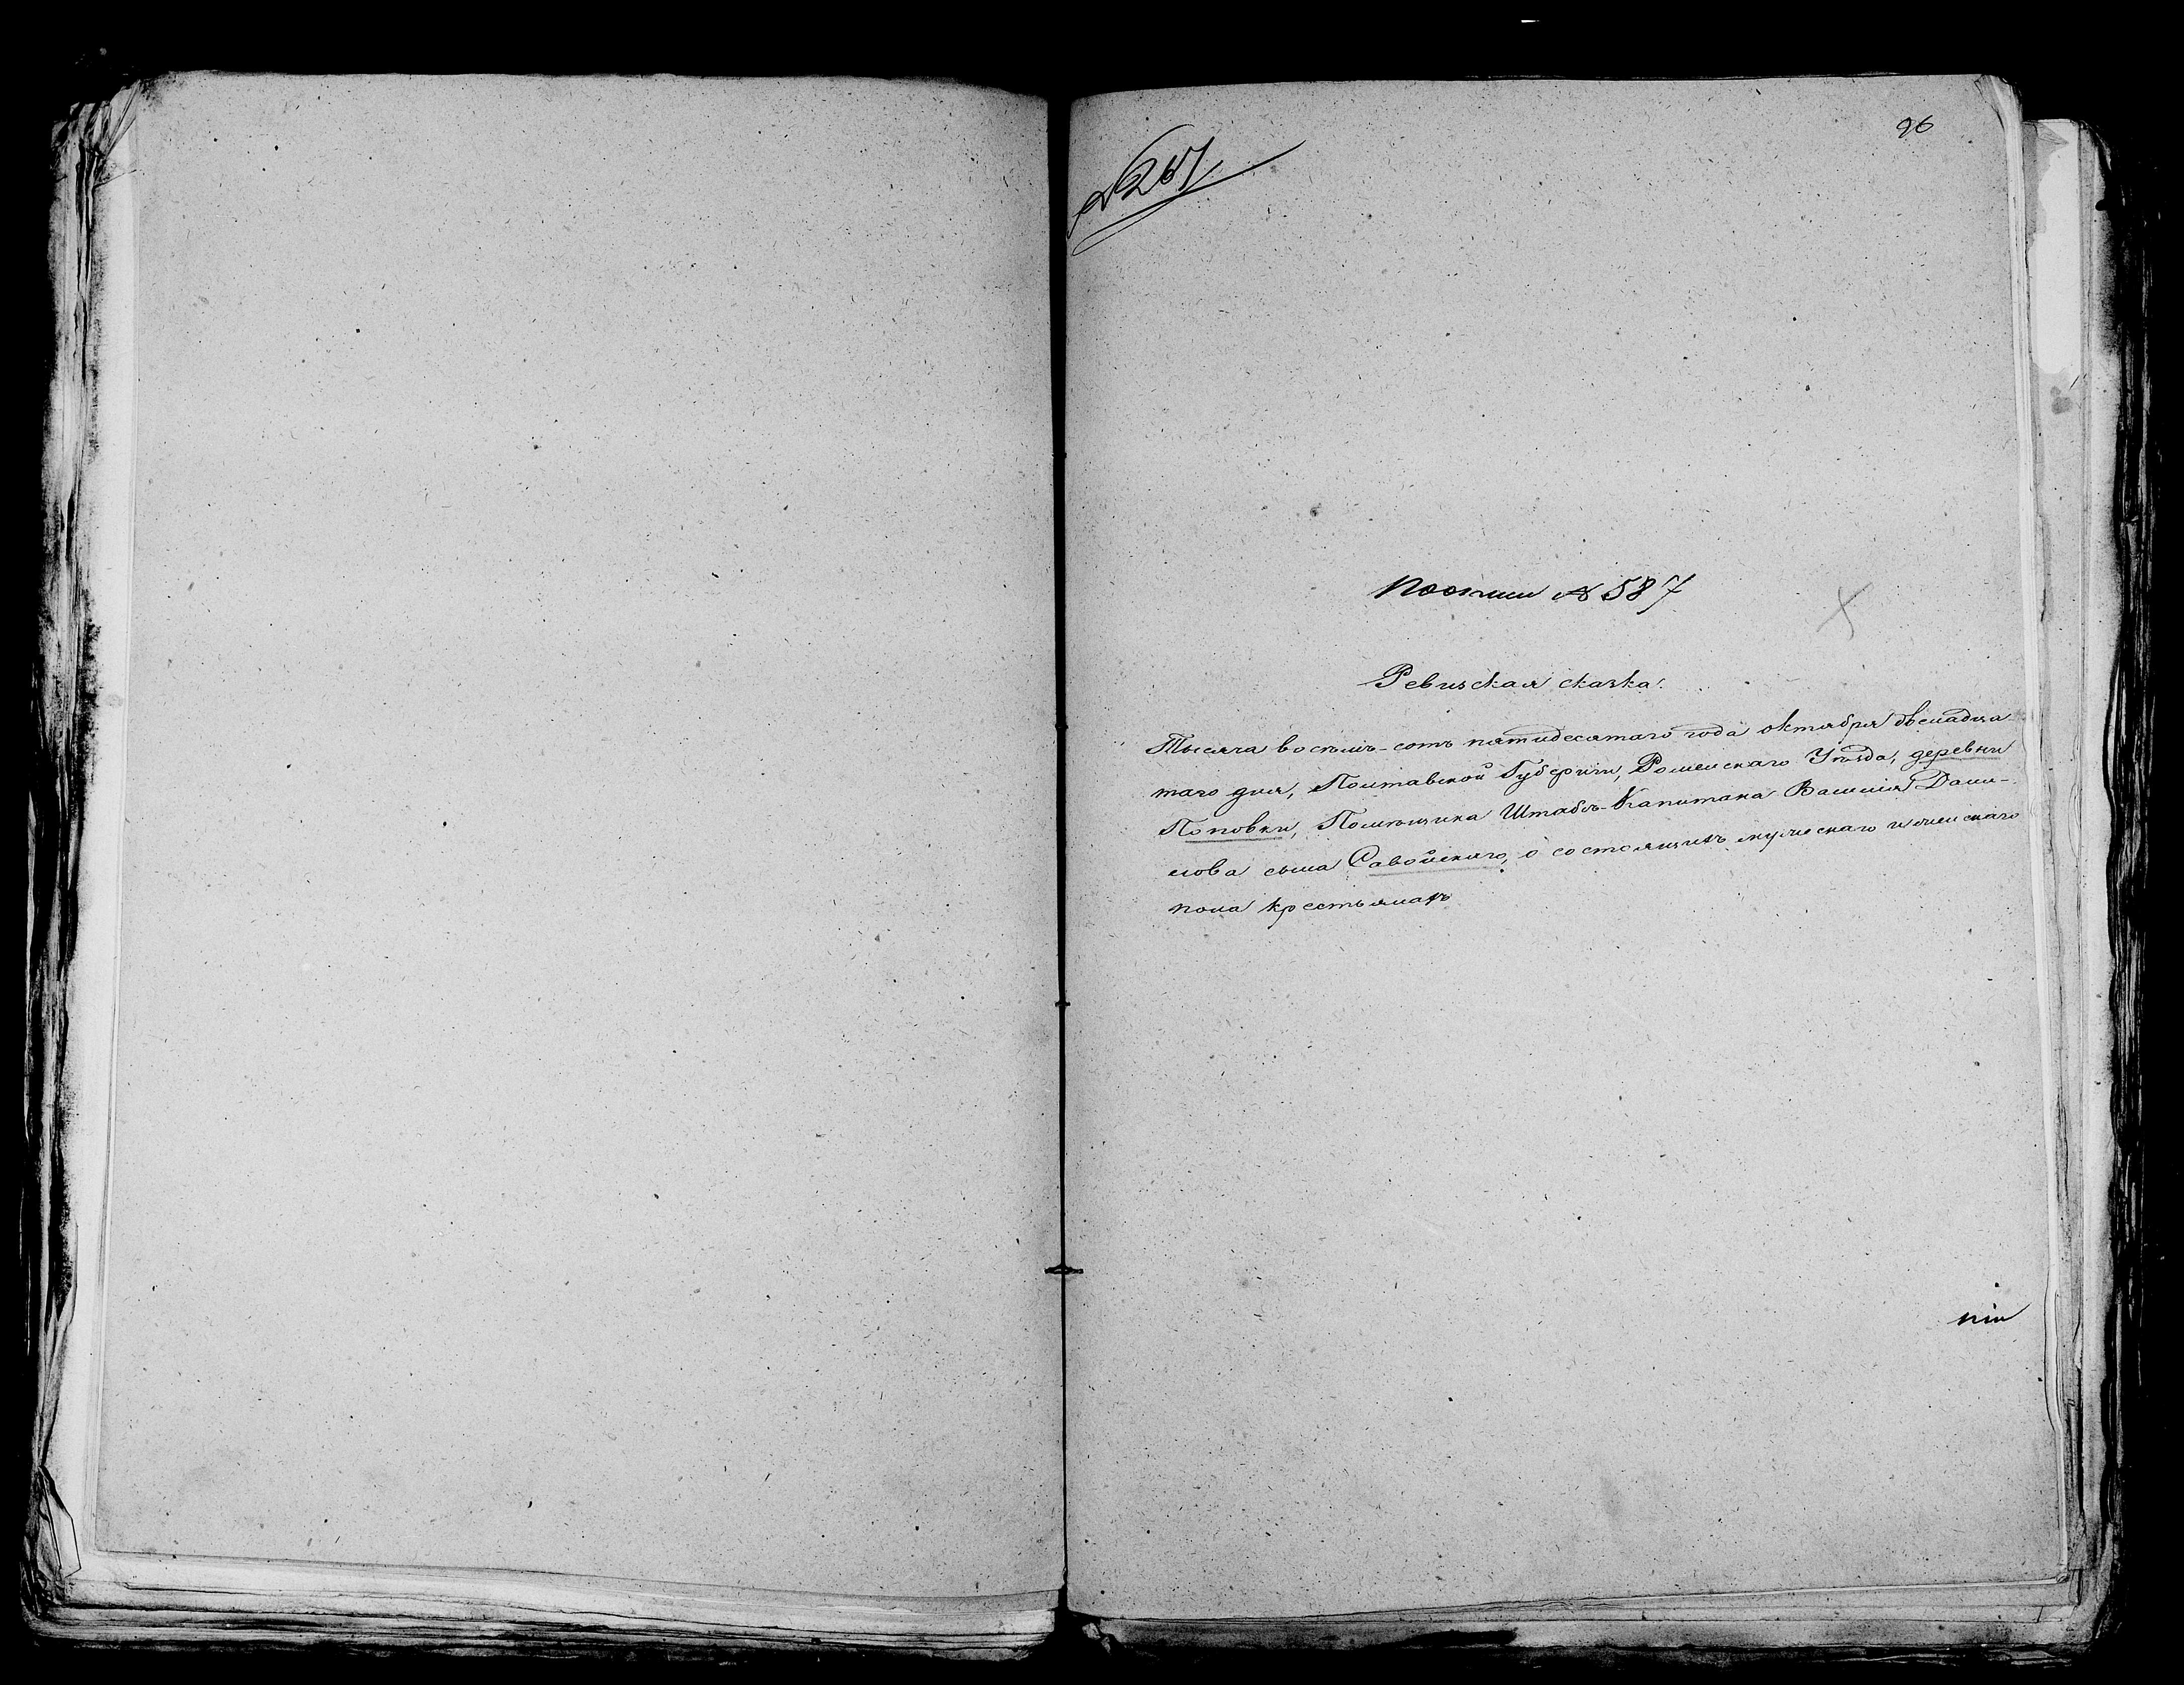 96
№ 267
По описи № 587
Ревизская сказка.
Тысяча восемь-сотъ пятидесятаго года октября двенадца
таго дня, Полтавской Губерніи, Роменскаго Уѣзда, деревни
Поповки, Помѣщика Штабсъ-Капитана Василія Дани-
лова сына Савойскаго, о состоящихъ мужескаго и женскаго
пола крестьянахъ